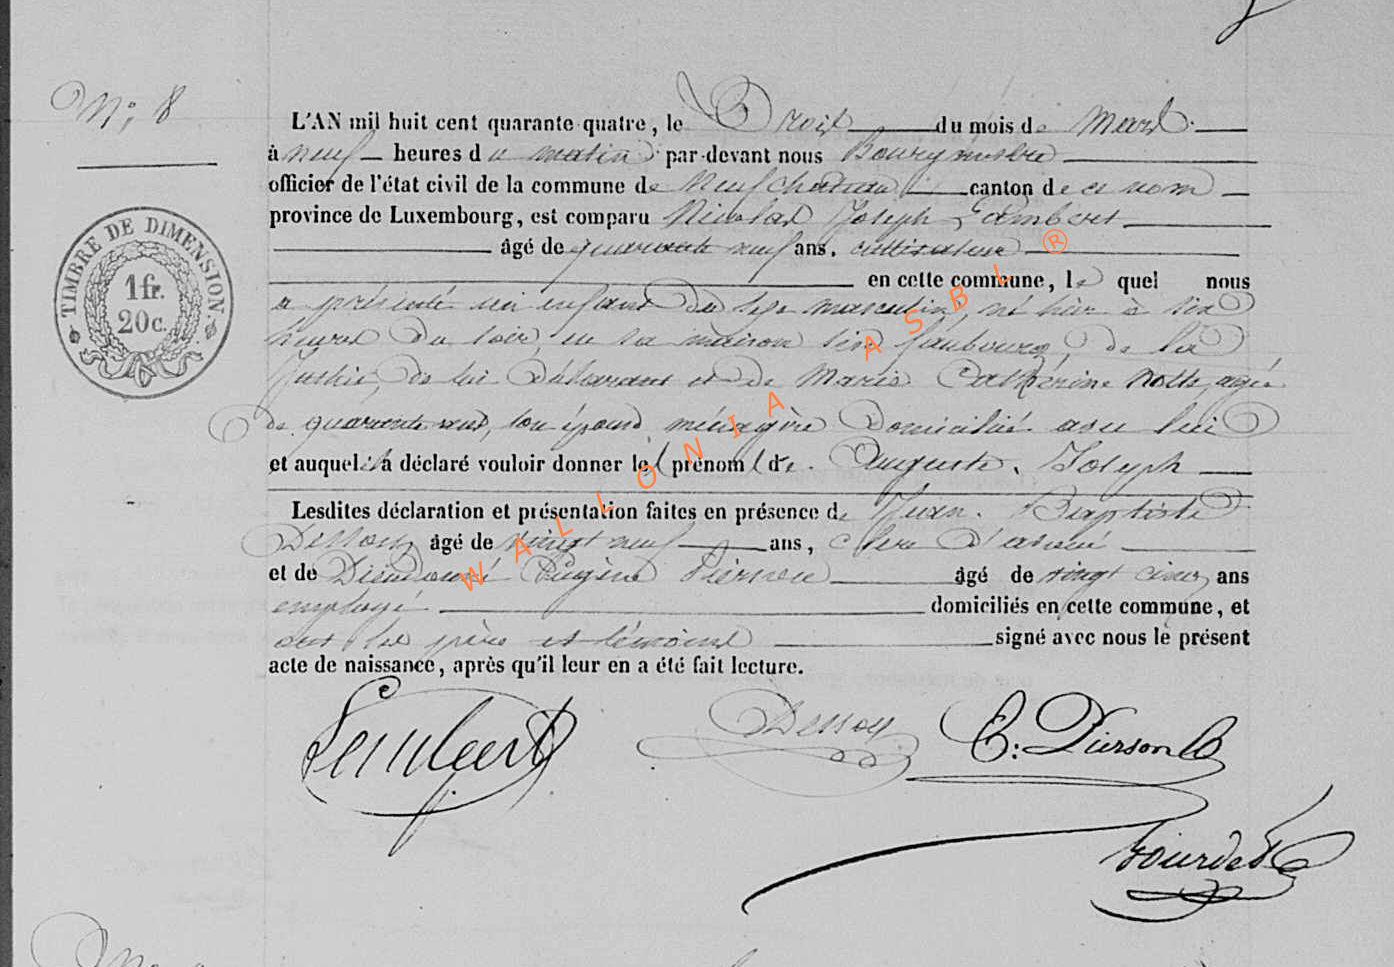 N° 8
L'AN mil huit cent quarante-quatre, le Trois du mois de Mars
à neuf heures du matin par-devant nous Bourgmestre
officier de l'état civil de la commune de Neufchateau canton de ce nom
province de Luxembourg, est comparu Nicolas Joseph Lambert
âgé de quarante neuf ans, cultivateur
en cette commune, le quel nous
a présenté un enfant du sexe masculin, né hier à six
heures du soir en sa maison sise faubourg, de la
Justice, de lui Déclarant et de Marie Catherine agée
de quarante son épouse ménagère Domicilié avec lui
et auquel il a déclaré vouloir donner les prénoms de Auguste, Joseph
Lesdites déclaration et présentation faites en présence de Jean Baptiste
Dessoy âgé de vingt neuf ans, clerc d'avoué
et de Dieudonné Eugène Pierson âgé de vingt cinq ans
employé domiciliés en cette commune, et
ont les père et témoins signé avec nous le présent
acte de naissance, après qu'il leur en a été fait lecture.
Lambert Dessoy E. Pierson
TIMBRE DE DIMENSION
1 fr.
20 c.
WALLONIA ASBL ®